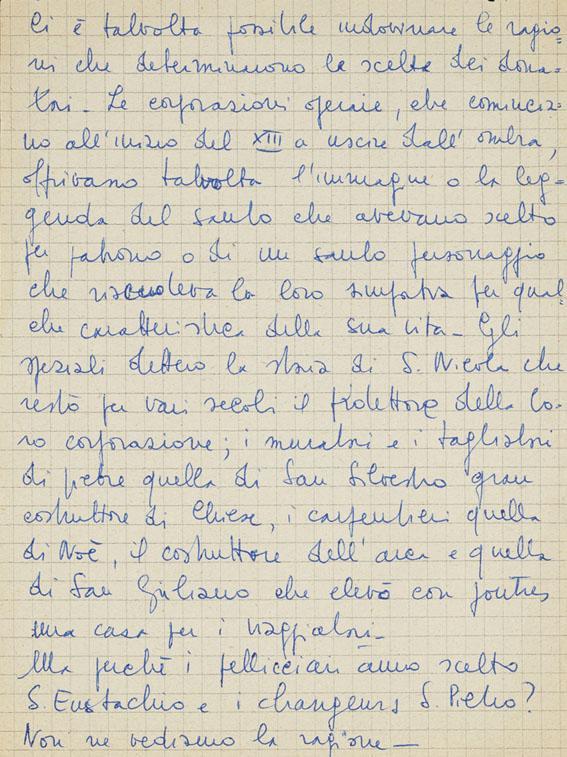 Ci è talvolta possibile indovinare le ragio-
ni che determinarono la scelta dei dona-
tori - Le corporazioni operaie, che comincia-
no all'inizio del XIII a uscire dall'ombra,
offrivano talvolta l'immagine o la leg-
genda del santo che avevano scelto
per patrono o di un santo personaggio
che riscuoteva la loro simpatia per qual-
che caratteristica della sua vita - Gli
speziali dettero la storia di S. Nicola che
restò per vari secoli il protettore della lo-
ro corporazione; i muratori e i tagliatori
di pietre quella di San Silvestro gran
costruttore di Chiese, i carpentieri quella
di Noè, il costruttore dell'arca e quella
di San Giuliano che elevò con poutres
una casa per i viaggiatori -
Ma perchè i pellicciari ànno scelto
S. Eustachio e i changeurs S. Pietro?
Non ne vediamo la ragione -